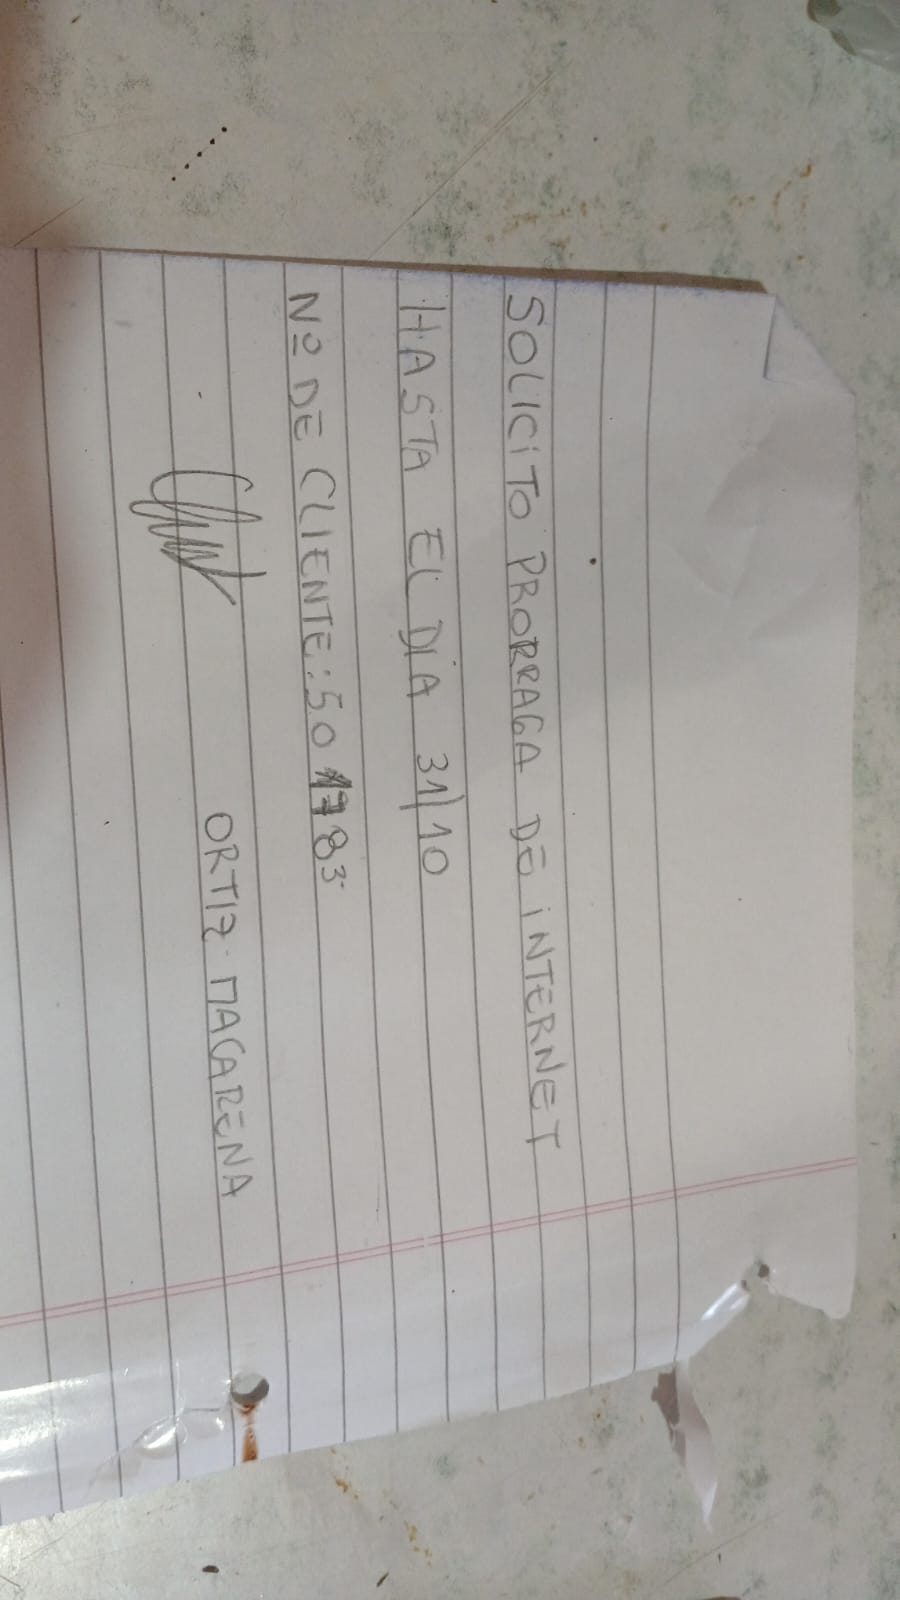 SOLICITO PRORRAGA DE INTERNET
HASTA EL DÍA 31/10
Nº DE CLIENTE: 501783
ORTIZ MACARENA